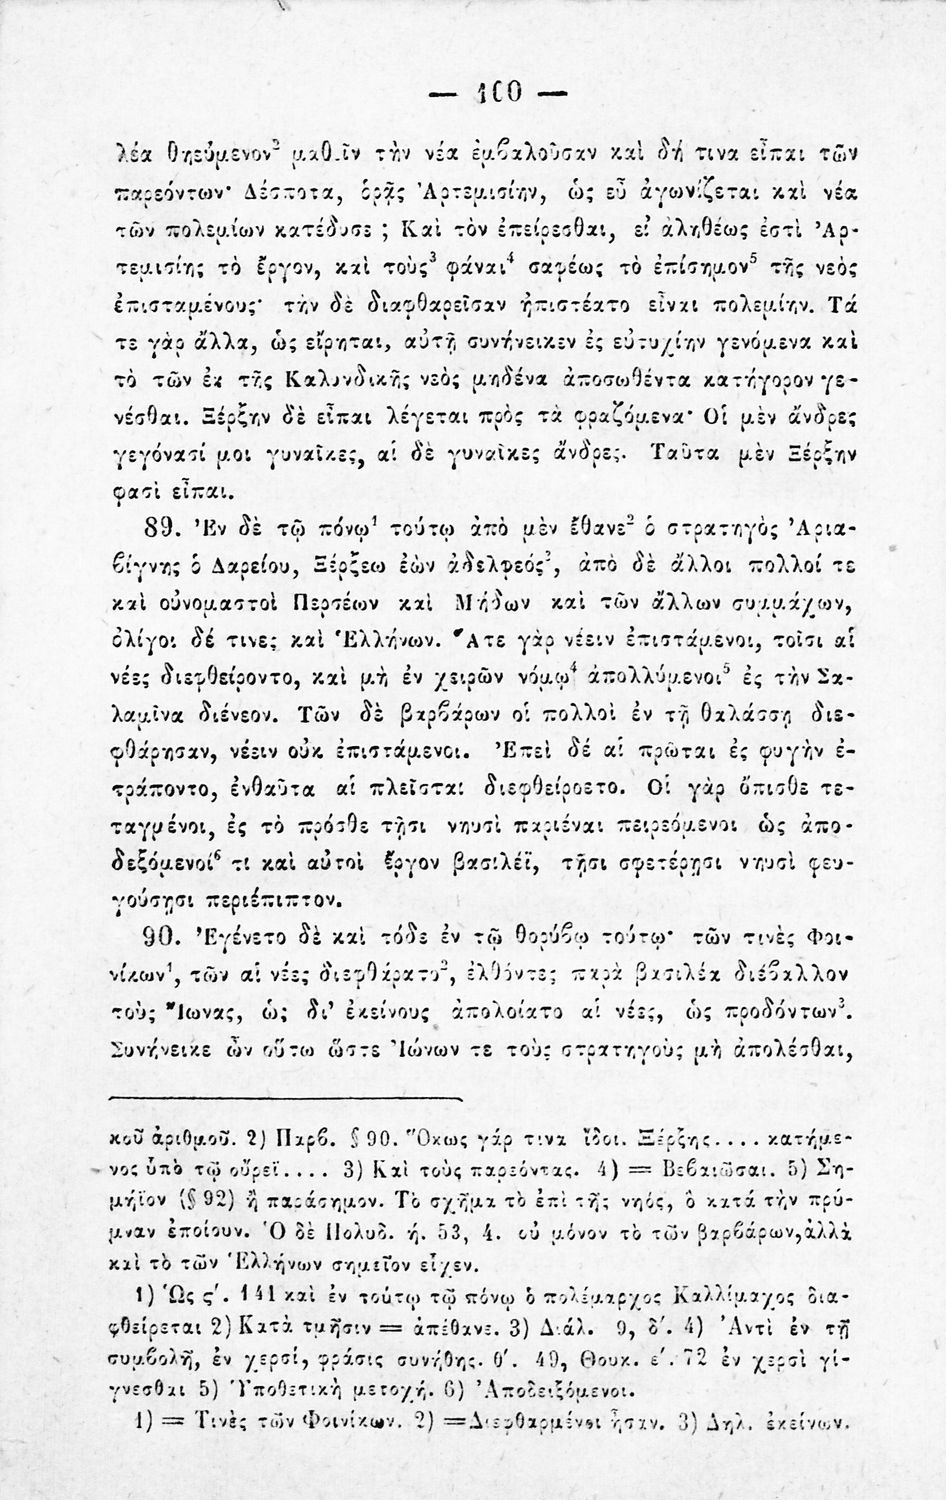 — 100 —
λέα θηεύμενον² μαθεῖν τὴν νέα ἐμβαλοῦσαν καὶ δή τινα εἶπαι τῶν
παρεόντων· Δέσποτα, ὁρᾷς Ἀρτεμισίην, ὡς εὖ ἀγωνίζεται καὶ νέα
τῶν πολεμίων κατέδυσε ; Καὶ τὸν ἐπείρεσθαι, εἰ ἀληθέως ἐστὶ Ἀρ-
τεμισίης τὸ ἔργον, καὶ τοὺς³ φάναι⁴ σαφέως τὸ ἐπίσημον⁵ τῆς νεὸς
ἐπισταμένους· τὴν δὲ διαφθαρεῖσαν ἠπιστέατο εἶναι πολεμίην. Τά
τε γὰρ ἄλλα, ὡς εἴρηται, αὐτῇ συνήνεικεν ἐς εὐτυχίην γενόμενα καὶ
τὸ τῶν ἐκ τῆς Καλυνδικῆς νεὸς μηδένα ἀποσωθέντα κατήγορον γε-
νέσθαι. Ξέρξην δὲ εἶπαι λέγεται πρὸς τὰ φραζόμενα· Οἱ μὲν ἄνδρες
γεγόνασί μοι γυναῖκες, αἱ δὲ γυναῖκες ἄνδρες. Ταῦτα μὲν Ξέρξην
φασὶ εἶπαι.
89. Ἐν δὲ τῷ πόνῳ¹ τούτῳ ἀπὸ μὲν ἔθανε² ὁ στρατηγὸς Ἀρια-
βίγνης ὁ Δαρείου, Ξέρξεω ἐὼν ἀδελφεός³, ἀπὸ δὲ ἄλλοι πολλοί τε
καὶ οὐνομαστοὶ Περσέων καὶ Μήδων καὶ τῶν ἄλλων συμμάχων,
ὀλίγοι δέ τινες καὶ Ἑλλήνων. Ἅτε γὰρ νέειν ἐπιστάμενοι, τοῖσι αἱ
νέες διεφθείροντο, καὶ μὴ ἐν χειρῶν νόμῳ⁴ ἀπολλύμενοι⁵ ἐς τὴν Σα-
λαμῖνα διένεον. Τῶν δὲ βαρβάρων οἱ πολλοὶ ἐν τῇ θαλάσσῃ διε-
φθάρησαν, νέειν οὐκ ἐπιστάμενοι. Ἐπεὶ δέ αἱ πρῶται ἐς φυγὴν ἐ-
τράποντο, ἐνθαῦτα αἱ πλεῖσται διεφθείροετο. Οἱ γὰρ ὄπισθε τε-
ταγμένοι, ἐς τὸ πρόσθε τῇσι νηυσὶ παριέναι πειρεόμενοι ὡς ἀπο-
δεξόμενοί⁶ τι καὶ αὐτοὶ ἔργον βασιλέϊ, τῇσι σφετέρῃσι νηυσὶ φευ-
γούσῃσι περιέπιπτον.
90. Ἐγένετο δὲ καὶ τόδε ἐν τῷ θορύβῳ τούτῳ· τῶν τινὲς Φοι-
νίκων¹, τῶν αἱ νέες διεφθάρατο², ἐλθόντες παρὰ βασιλέα διέβαλλον
τοὺς Ἴωνας, ὡς δι' ἐκείνους ἀπολοίατο αἱ νέες, ὡς προδόντων³.
Συνήνεικε ὦν οὕτω ὥστε Ἰώνων τε τοὺς στρατηγοὺς μὴ ἀπολέσθαι,
κοῦ ἀριθμοῦ. 2) Παρβ. § 90. Ὅκως γάρ τινα ἴδοι. Ξέρξης.... κατήμε-
νος ὑπὸ τῷ οὔρεϊ.... 3) Καὶ τοὺς παρεόντας. 4) = Βεβαιῶσαι. 5) Ση-
μήϊον (§ 92) ἢ παράσημον. Τὸ σχῆμα τὸ ἐπὶ τῆς νηός, ὃ κατά τὴν πρύ-
μναν ἐποίουν. Ὁ δὲ Πολυδ. ή. 53, 4. οὐ μόνον τὸ τῶν βαρβάρων,ἀλλὰ
καὶ τὸ τῶν Ἑλλήνων σημεῖον εἶχεν.
1) Ὡς ς'. 141 καὶ ἐν τούτῳ τῷ πόνῳ ὁ πολέμαρχος Καλλίμαχος δια-
φθείρεται 2) Κατὰ τμῆσιν = ἀπέθανε. 3) Διάλ. 9, δ'. 4) Ἀντὶ ἐν τῇ
συμβολῇ, ἐν χερσί, φράσις συνήθης. θ'. 49, Θουκ. ε'. 72 ἐν χερσὶ γί-
γνεσθαι 5) Ὑποθετικὴ μετοχή. 6) Ἀποδειξόμενοι.
1) = Τινὲς τῶν Φοινίκων. 2) = Διεφθαρμένοι ἦσαν. 3) Δηλ. ἐκείνων.